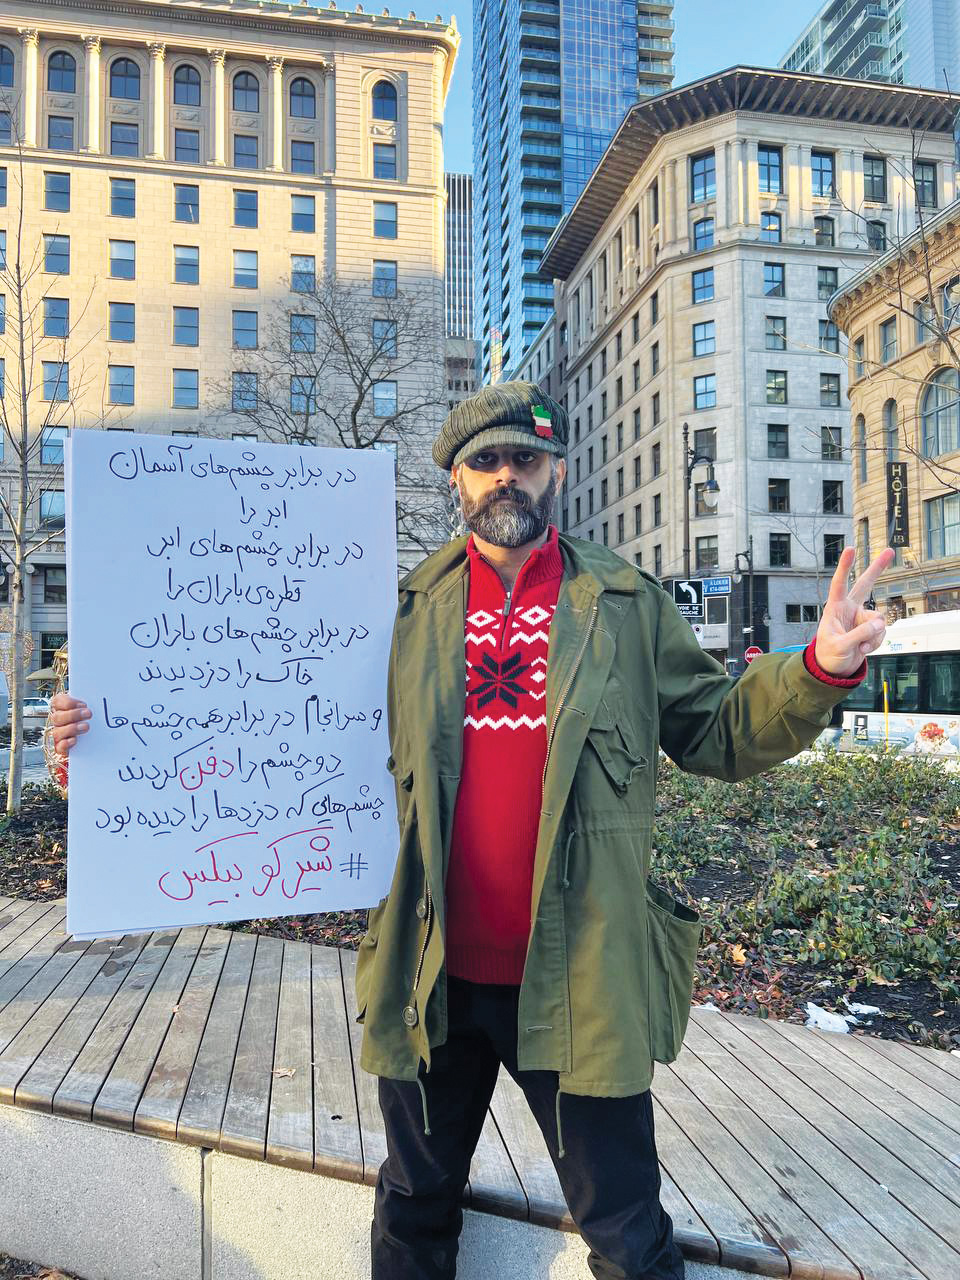 در برابر چشم‌های آسمان
ابر را
در برابر چشم‌های ابر
قطره‌ی باران را
در برابر چشم‌های باران
خاک را دزدیدند
و سرانجام در برابر همه چشم‌ها
دو چشم را دفن کردند
چشم‌هایی که دزدها را دیده بود
# شیرکو بیکس
HÔTEL
VOIE DE
GAUCHE
ARRÊT
stm